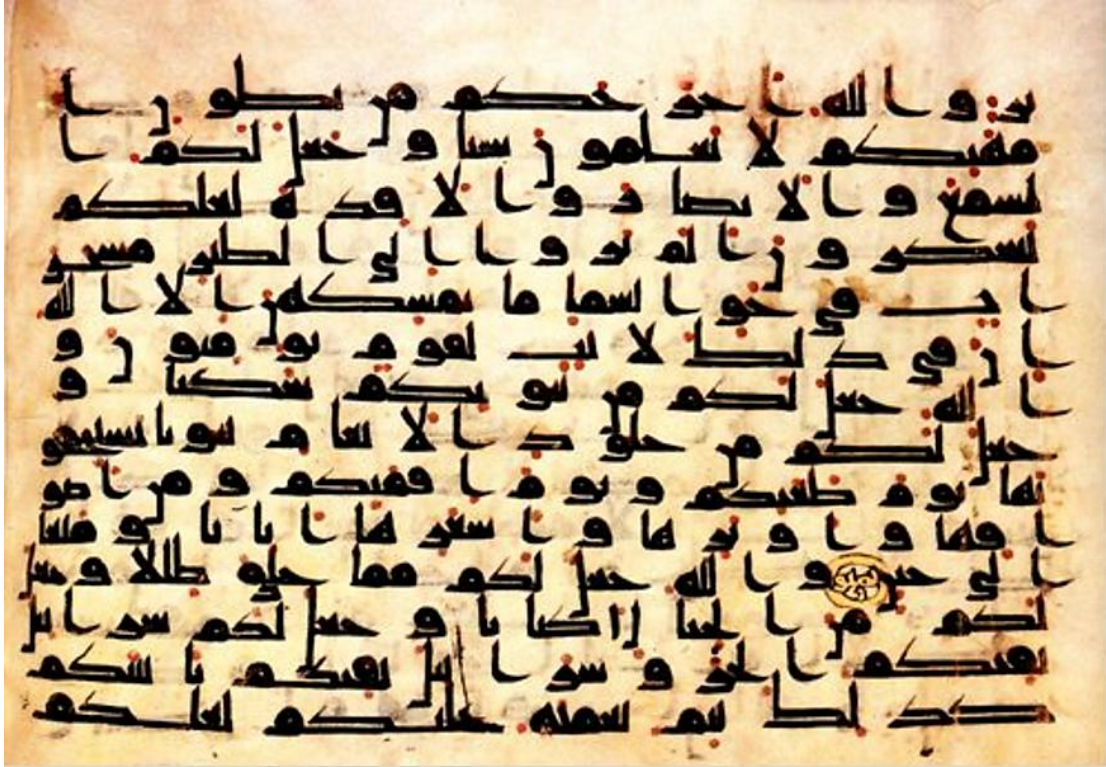 ير والله اخرجكم من بطون ا
مهتكم لا تعلمون شيا وجعل لكم ا
لسمع والابصار والافدة لعلكم
تشكرون الم يروا الى الطير مسخر
ات في جو السما ما يمسكهن الا الله
ان في ذلك لايت لقوم يومنون و
الله جعل لكم من بيوتكم سكنا و
جعل لكم من جلود الانعام بيوتا تستخفو
نها يوم ظعنكم ويوم اقمتكم ومن اصو
افها واوبرها واشعرها اثاثا ومتعا
الى حين والله جعل لكم مما خلق ظللا وجعل
لكم من الجبا ل اكنا نا وجعل لكم سرابيل
تقيكم الحر وسرابيل تقيكم باسكم
كذلك يتم نعمته عليكم لعلكم